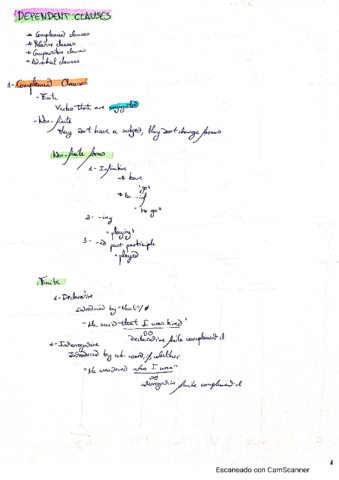 DEPENDENT CLAUSES
→ Complement clauses
→ Relative clauses
→ Comparative clauses
→ Adverbial clauses
1- Complement Clauses
- Finite
Verbs that are
- Non-finite
They don't have a subject, they don't change forms
Non-finite forms
1- Infinitive
→ bare
"go"
→ to -
"to go"
2- -ing
"playing"
3- -ed past participle
"played"
Finite
1- Declarative
introduced by "that"/ø
"He said that I was hired"
DO
Declarative finite complement cl.
2- Interrogative
Introduced by wh- word, if, whether
"He wondered who I was"
DO
interrogative finite complement cl
Escaneado con CamScanner